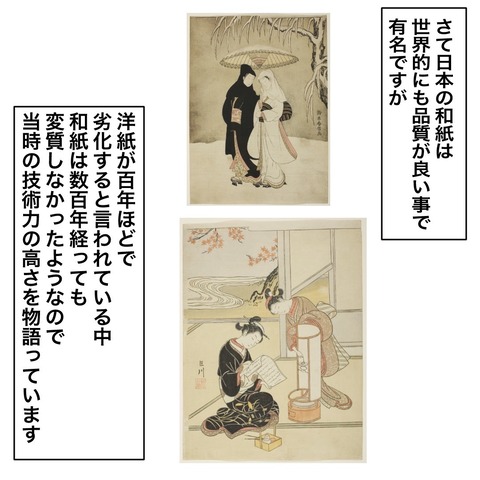 さて日本の和紙は
世界的にも品質が良い事で
有名ですが
洋紙が百年ほどで
劣化すると言われている中
和紙は数百年経っても
変質しなかったようなので
当時の技術力の高さを物語っています